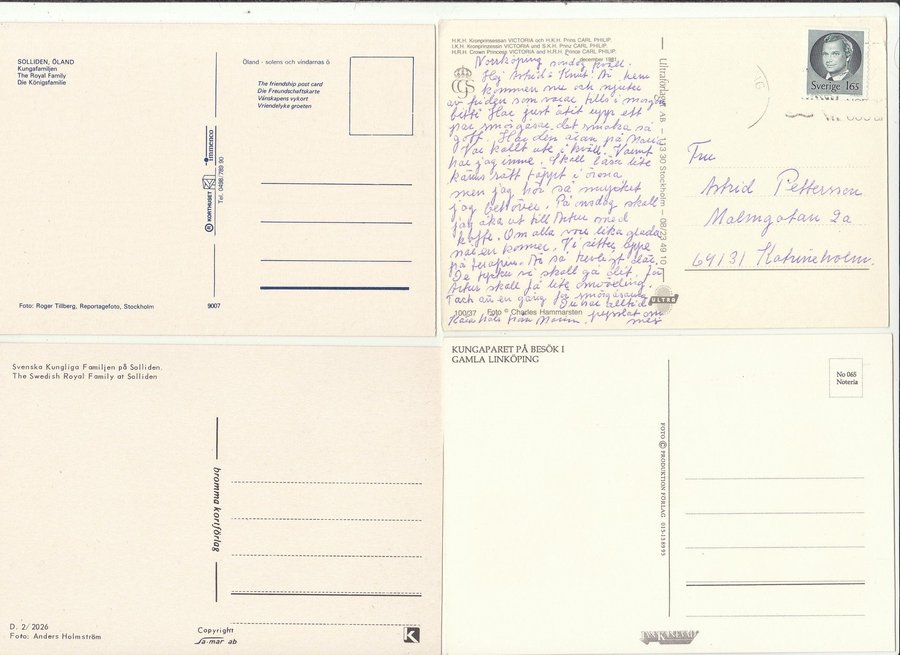 SOLLIDEN, ÖLAND
Kungafamiljen
The Royal Family
Die Königsfamilie
Öland - solens och vindarnas ö
The friendship post card
Die Freundschaftskarte
Vänskapens vykort
Vriendelyke groeten
immenco
KORTHUSET
Tel. 0498/789 90
Foto: Roger Tillberg, Reportagefoto, Stockholm
9007
H.K.H. Kronprinsessan VICTORIA och H.K.H. Prins CARL PHILIP.
I.K.H. Kronprinzessin VICTORIA und S.K.H. Prinz CARL PHILIP.
H.R.H. Crown Princess VICTORIA and H.R.H. Prince CARL PHILIP.
december 1981
Norrköping söndag kväll.
Hej Astrid o Knut. Vi hem
kommen nu och njuter
av friden som varar tills i morgon
bitti Har just ätit upp ett
par smörgåsar det smaka så
gott.
Var kallt ute i kväll. Varmt
har jag inne. Skall läsa lite
känns rätt täppt i öronen
men jag hör så mycket
jag behöver. På onsdag skall
jag åka ut till Artur med
kaffe. Om alla vore lika glada
när en kommer. Vi sitter uppe
på terapin.
De tycker vi skall gå dit, för
Artur skall få lite omväxling.
Tack än en gång för smörgåsarna
Du har alltid
pysslat om
mig
Ultraförlaget AB – 113 30 Stockholm – 08/23 49 10
Sverige 165
Fru
Astrid Pettersson
Malmgatan 2a
64131 Katrineholm.
100/37 Foto © Charles Hammarsten
ULTRA
Svenska Kungliga Familjen på Solliden.
The Swedish Royal Family at Solliden
bromma kortförlag
D. 2/2026
Foto: Anders Holmström
Copyright
Sa-mar ab
K
KUNGAPARET PÅ BESÖK I
GAMLA LINKÖPING
No 065
Noteria
FOTO © PRODUKTION FÖRLAG 013-158993